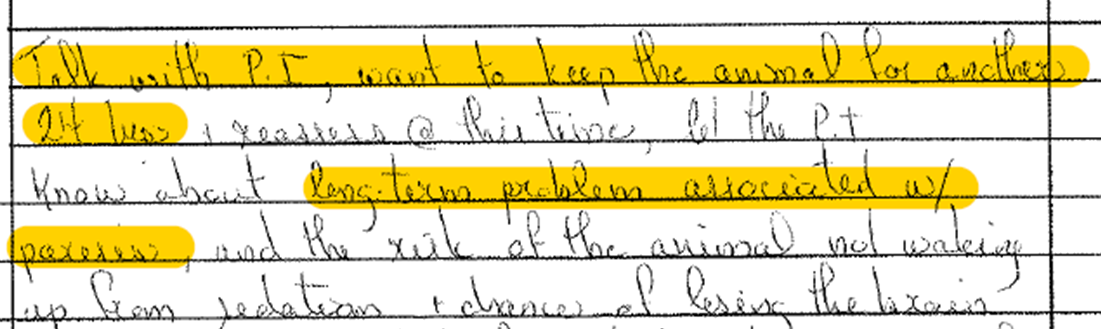 Talk with P.I, want to keep the animal for another
24 hrs, reassess @ this time, let the P.I
know about long-term problem associated w/
paresis, and the risk of the animal not waking
up from sedation + chances of losing the brain